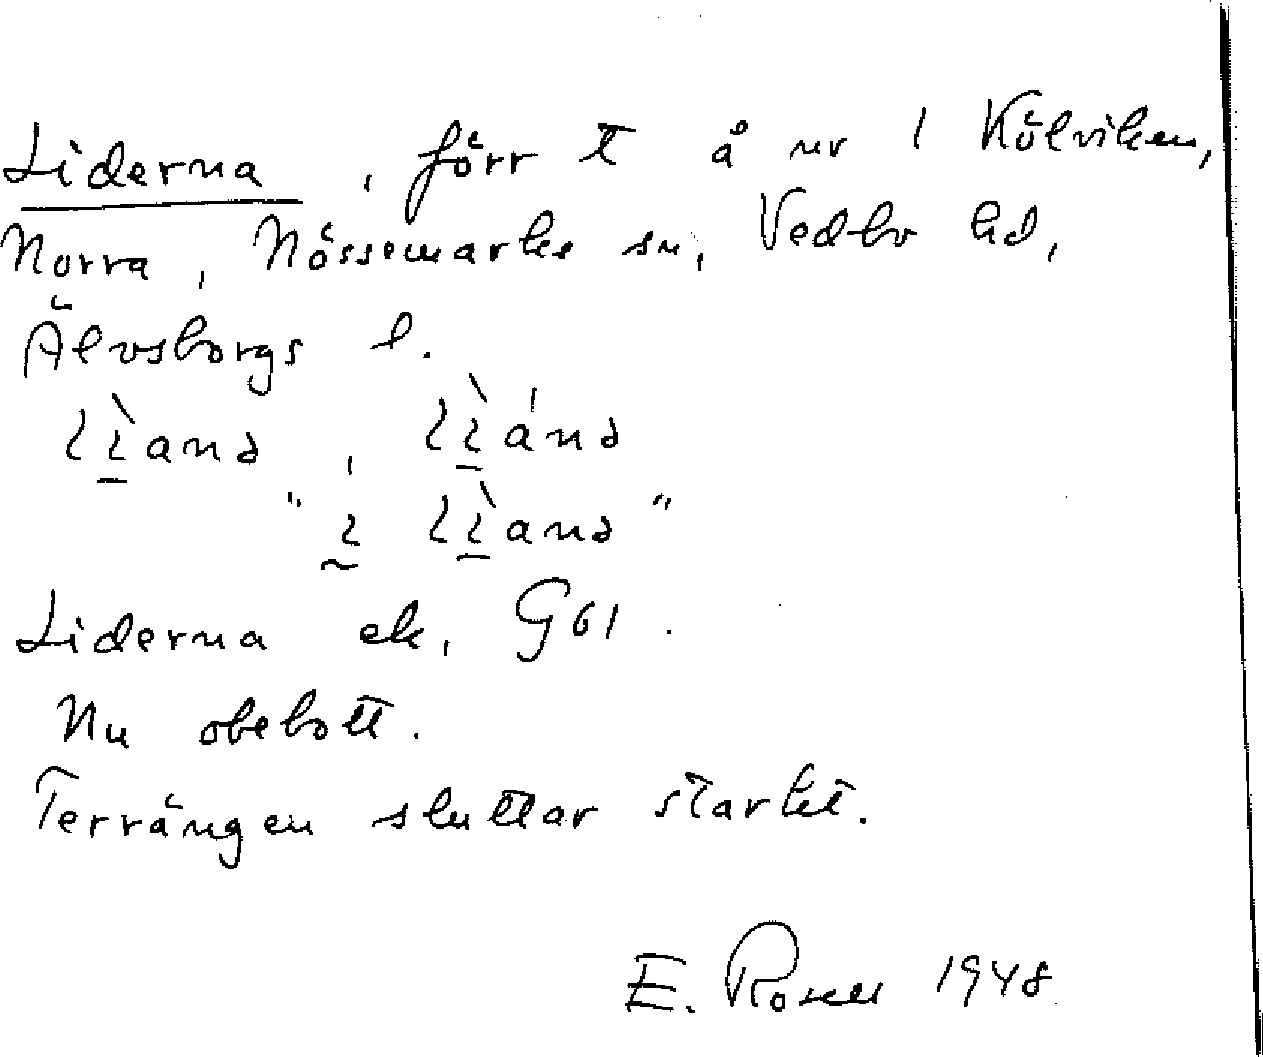 Liderna, förr t å nr 1 Kölviken,
Norra, Nössemarks sn, Vedbo hd,
Älvsborgs l.
lìanə, lìánə
"i lìanə"
Liderna ek, G61.
Nu obebott.
Terrängen sluttar starkt.
E. Rosell 1948